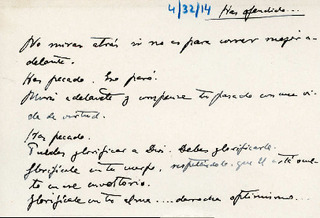 4/32/14 Has ofendido...
No mirar atrás si no es para correr mejor a-
delante.
Has pecado. Eso pasó.
Mira adelante y compensa tu pasado con una vi-
da de virtud.
Has pecado.
Puedes glorificar a Dios. Debes glorificarle.
Glorifícale en tu cuerpo, respetándolo. que Él está
te
Glorifícale en tu alma.... derrocha optimismo...